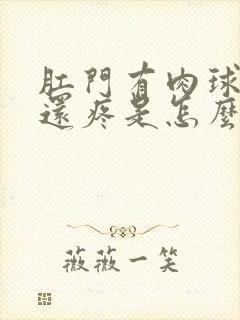 肛門有肉球
還疼是怎麼
薇薇一笑